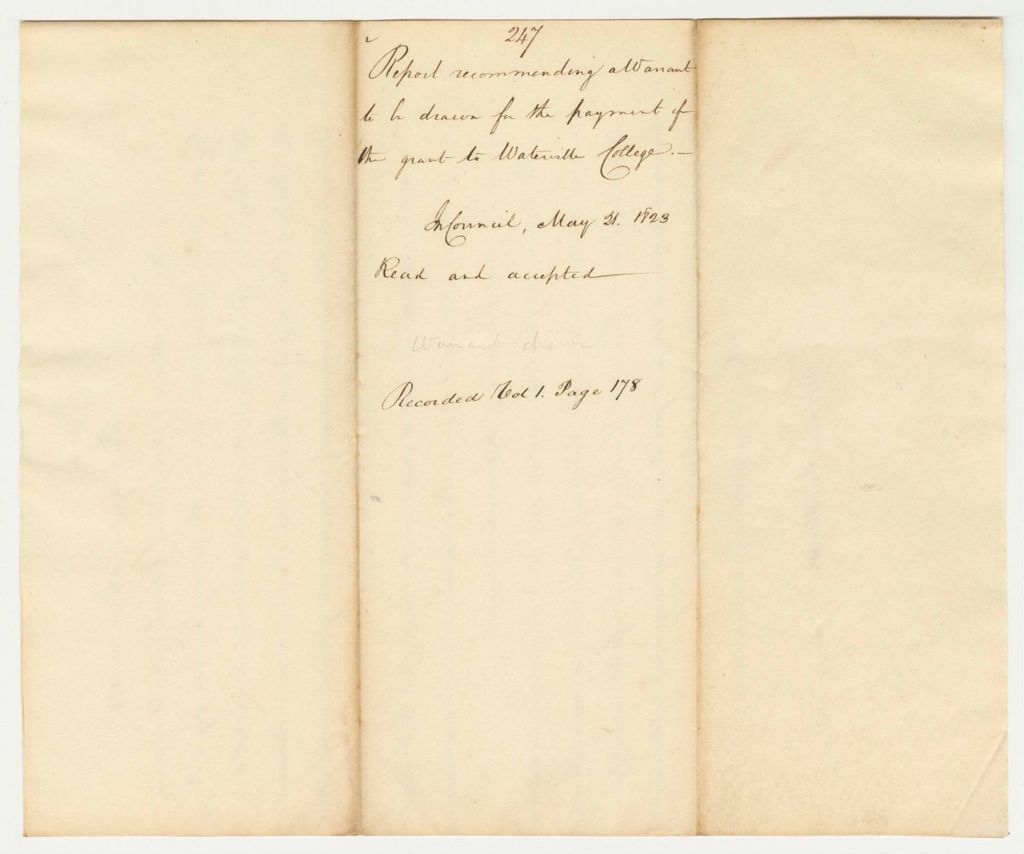 247
Report recommending a Warrant
to be drawn for the payment of
the grant to Waterville College.—
In Council, May 21. 1823
Read and accepted
Warrant drawn
Recorded Vol 1. Page 178